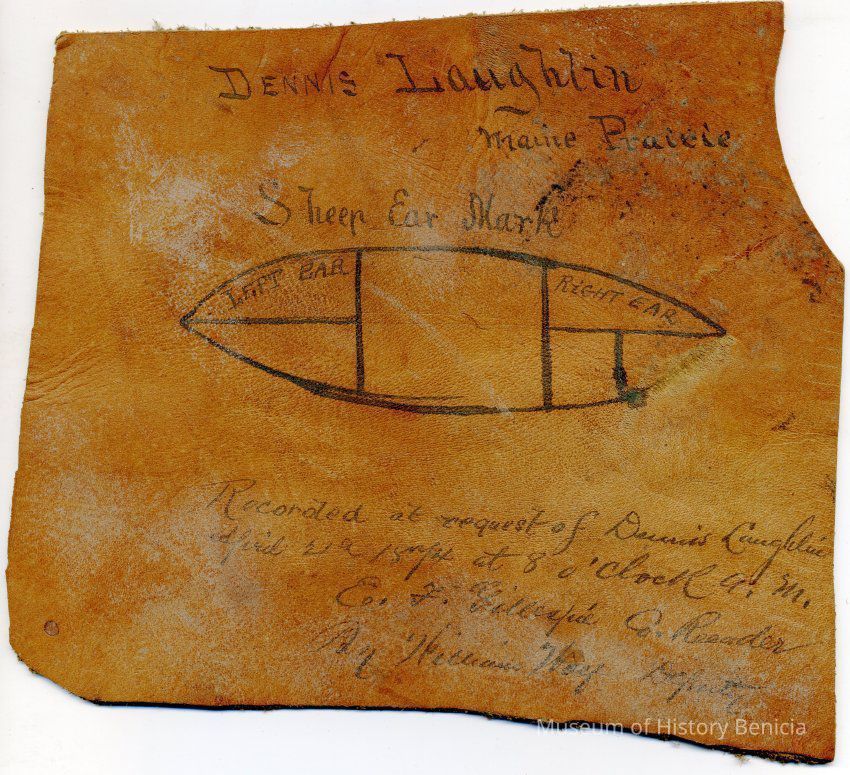 DENNIS Laughlin
Maine Prairie
Sheep Ear Mark
LEFT EAR
RIGHT EAR
Recorded at request of Dennis Laughlin
April 2nd at 8 o'clock A. M.
E. F. Gillespie Co. Recorder
By William Deputy
Museum of History Benicia